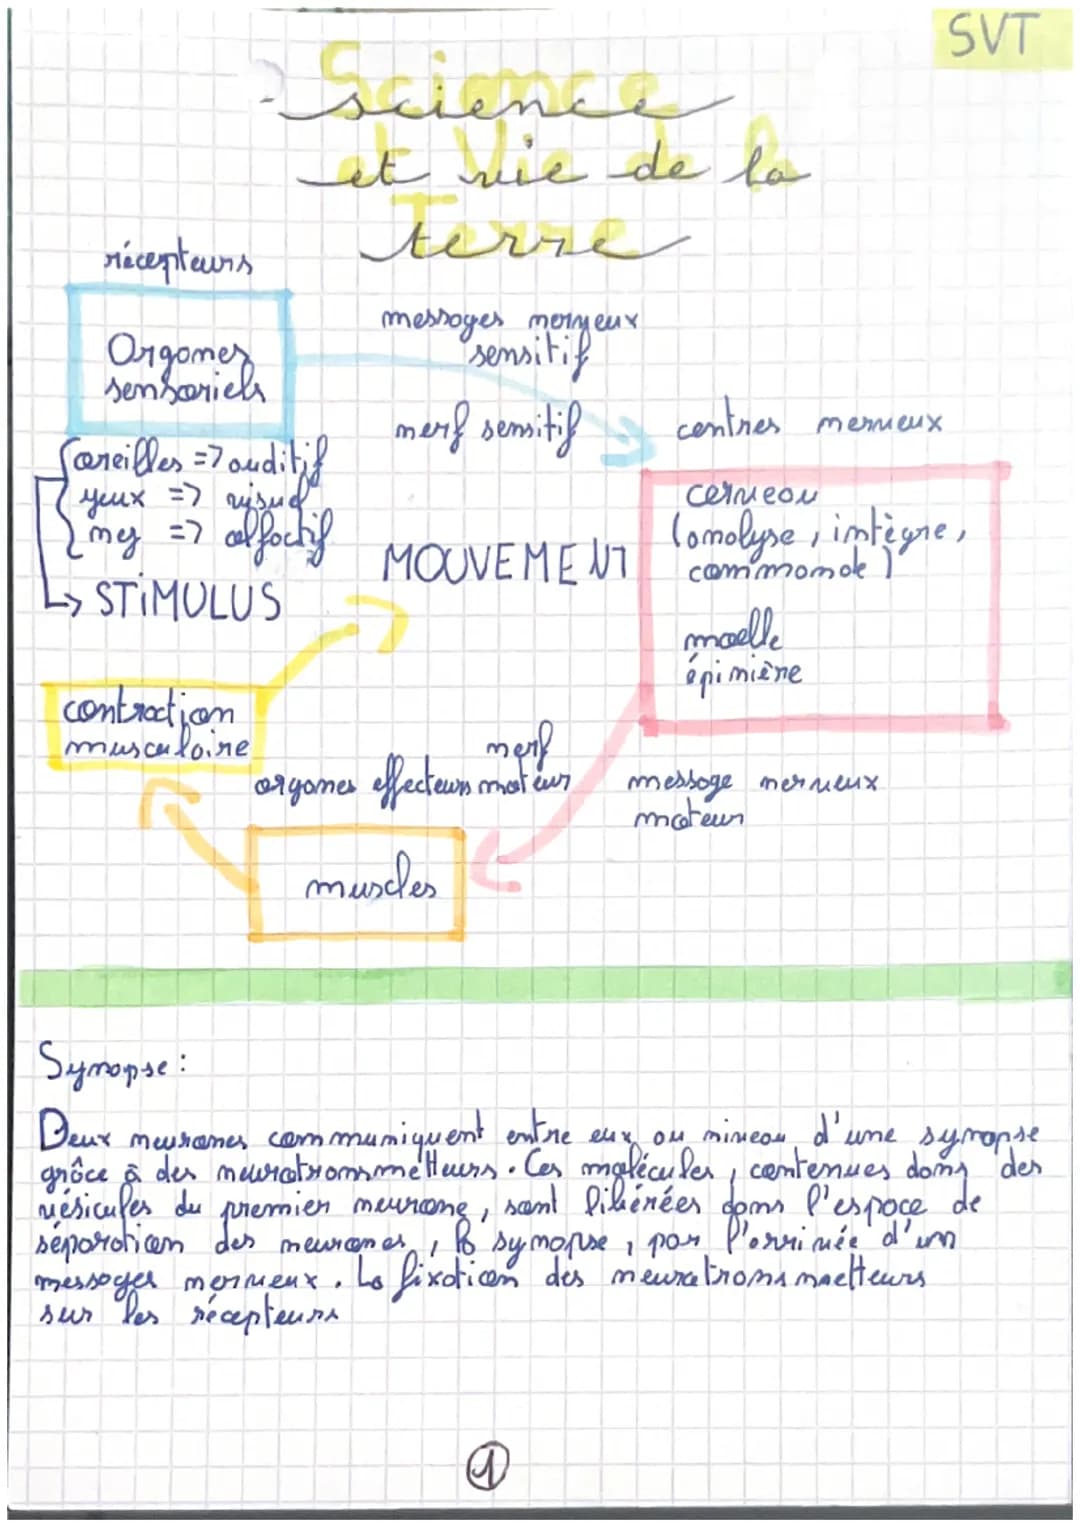 SVT
Science
et Vie de la
Terre
récepteurs
Organes
sensoriels
messages nerveux
sensitif
nerf sensitif
centres nerveux
oreilles => auditif
yeux => visuel
nez => olfactif
-> STIMULUS
MOUVEMENT
cerveau
(analyse, intègre,
commande)
moelle
épinière
contraction
musculaire
nerf
organes effecteurs moteur
message nerveux
moteur
muscles
Synapse :
Deux neurones communiquent entre eux au niveau d'une synapse
grâce à des neurotransmetteurs. Ces molécules, contenues dans des
vésicules du premier neurone, sont libérées dans l'espace de
séparation des neurones, la synapse, par l'arrivée d'un
messages nerveux. La fixation des neurotransmetteurs
sur les récepteurs
1